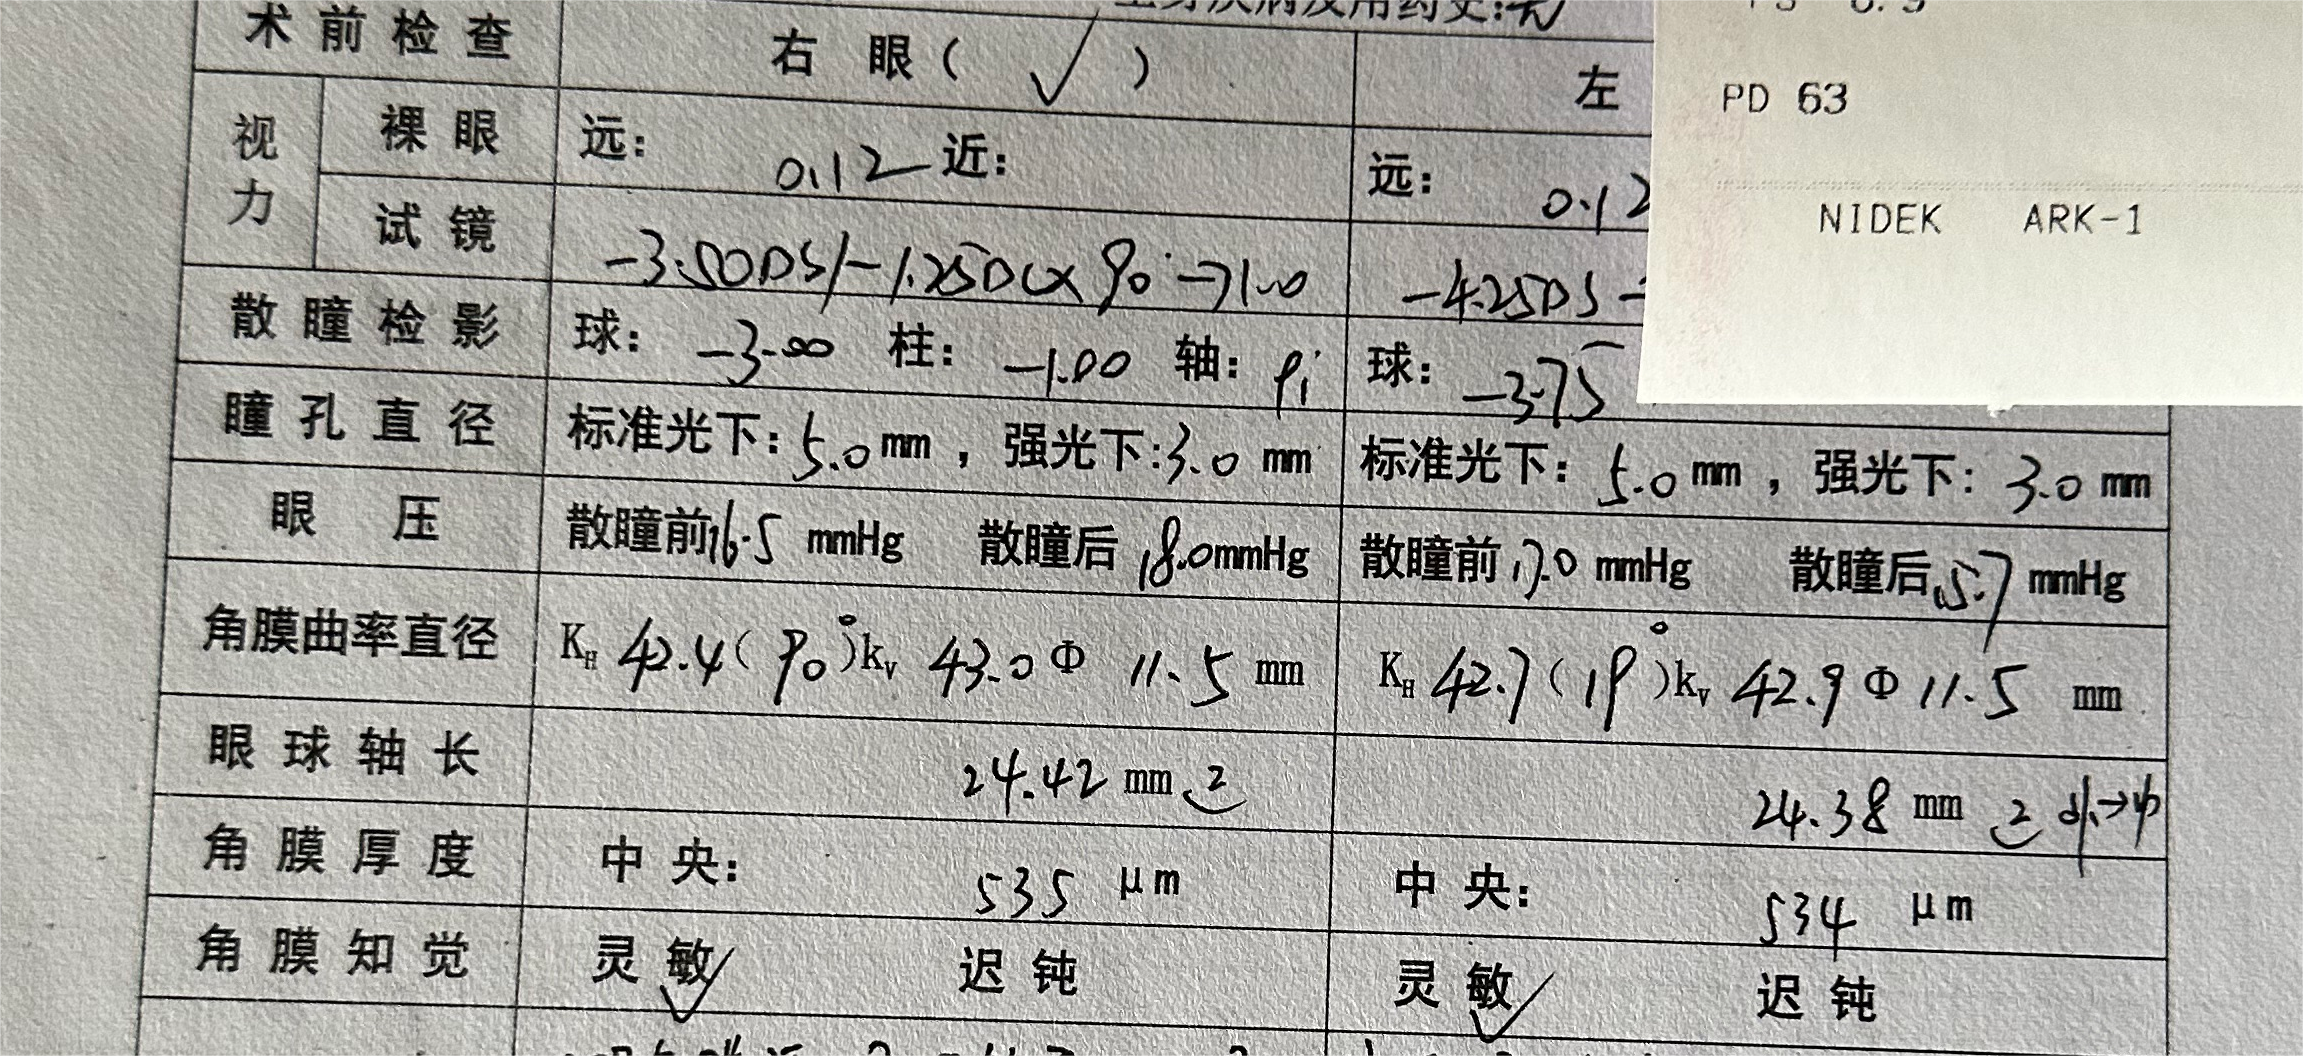 全身疾病及用药史:无
术前检查 右 眼( ✓ ) 左
PD 63
视力 裸眼 远: 0.12 近: 远: 0.12
NIDEK ARK-1
试镜 -3.50DS/-1.25DC×90°→1.0 -4.25DS
散瞳检影 球: -3.00 柱: -1.00 轴: 球: -3.75
瞳孔直径 标准光下: 5.0 mm , 强光下: 3.0 mm 标准光下: 5.0 mm , 强光下: 3.0 mm
眼 压 散瞳前 16.5 mmHg 散瞳后 18.0 mmHg 散瞳前 17.0 mmHg 散瞳后 15.7 mmHg
角膜曲率直径 KH 42.4 ( 90° ) kv 43.0 Φ 11.5 mm KH 42.7 ( 19° ) kv 42.9 Φ 11.5 mm
眼球轴长 24.42 mm 24.38 mm
角膜厚度 中央: 535 μm 中央: 534 μm
角膜知觉 灵敏 ✓ 迟钝 灵敏 ✓ 迟钝